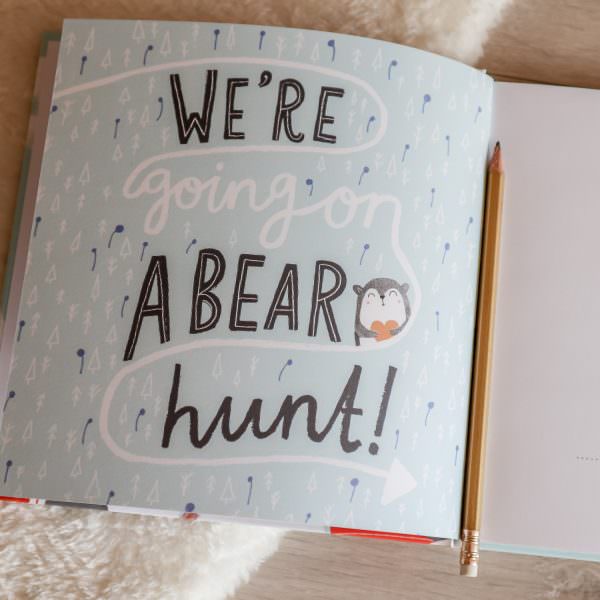 WE'RE
going on
A BEAR
hunt!